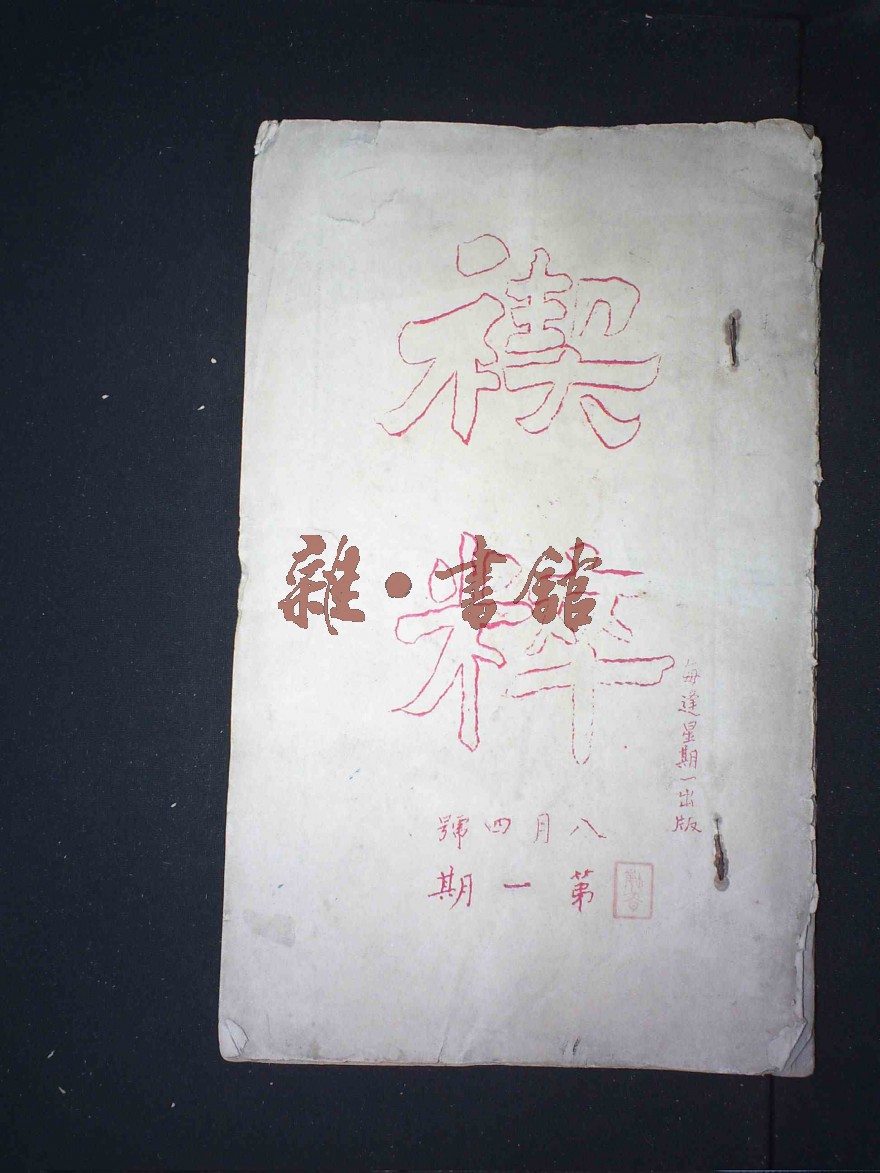 禊粹
雜·書館
每逢星期一出版
八月四號
第一期